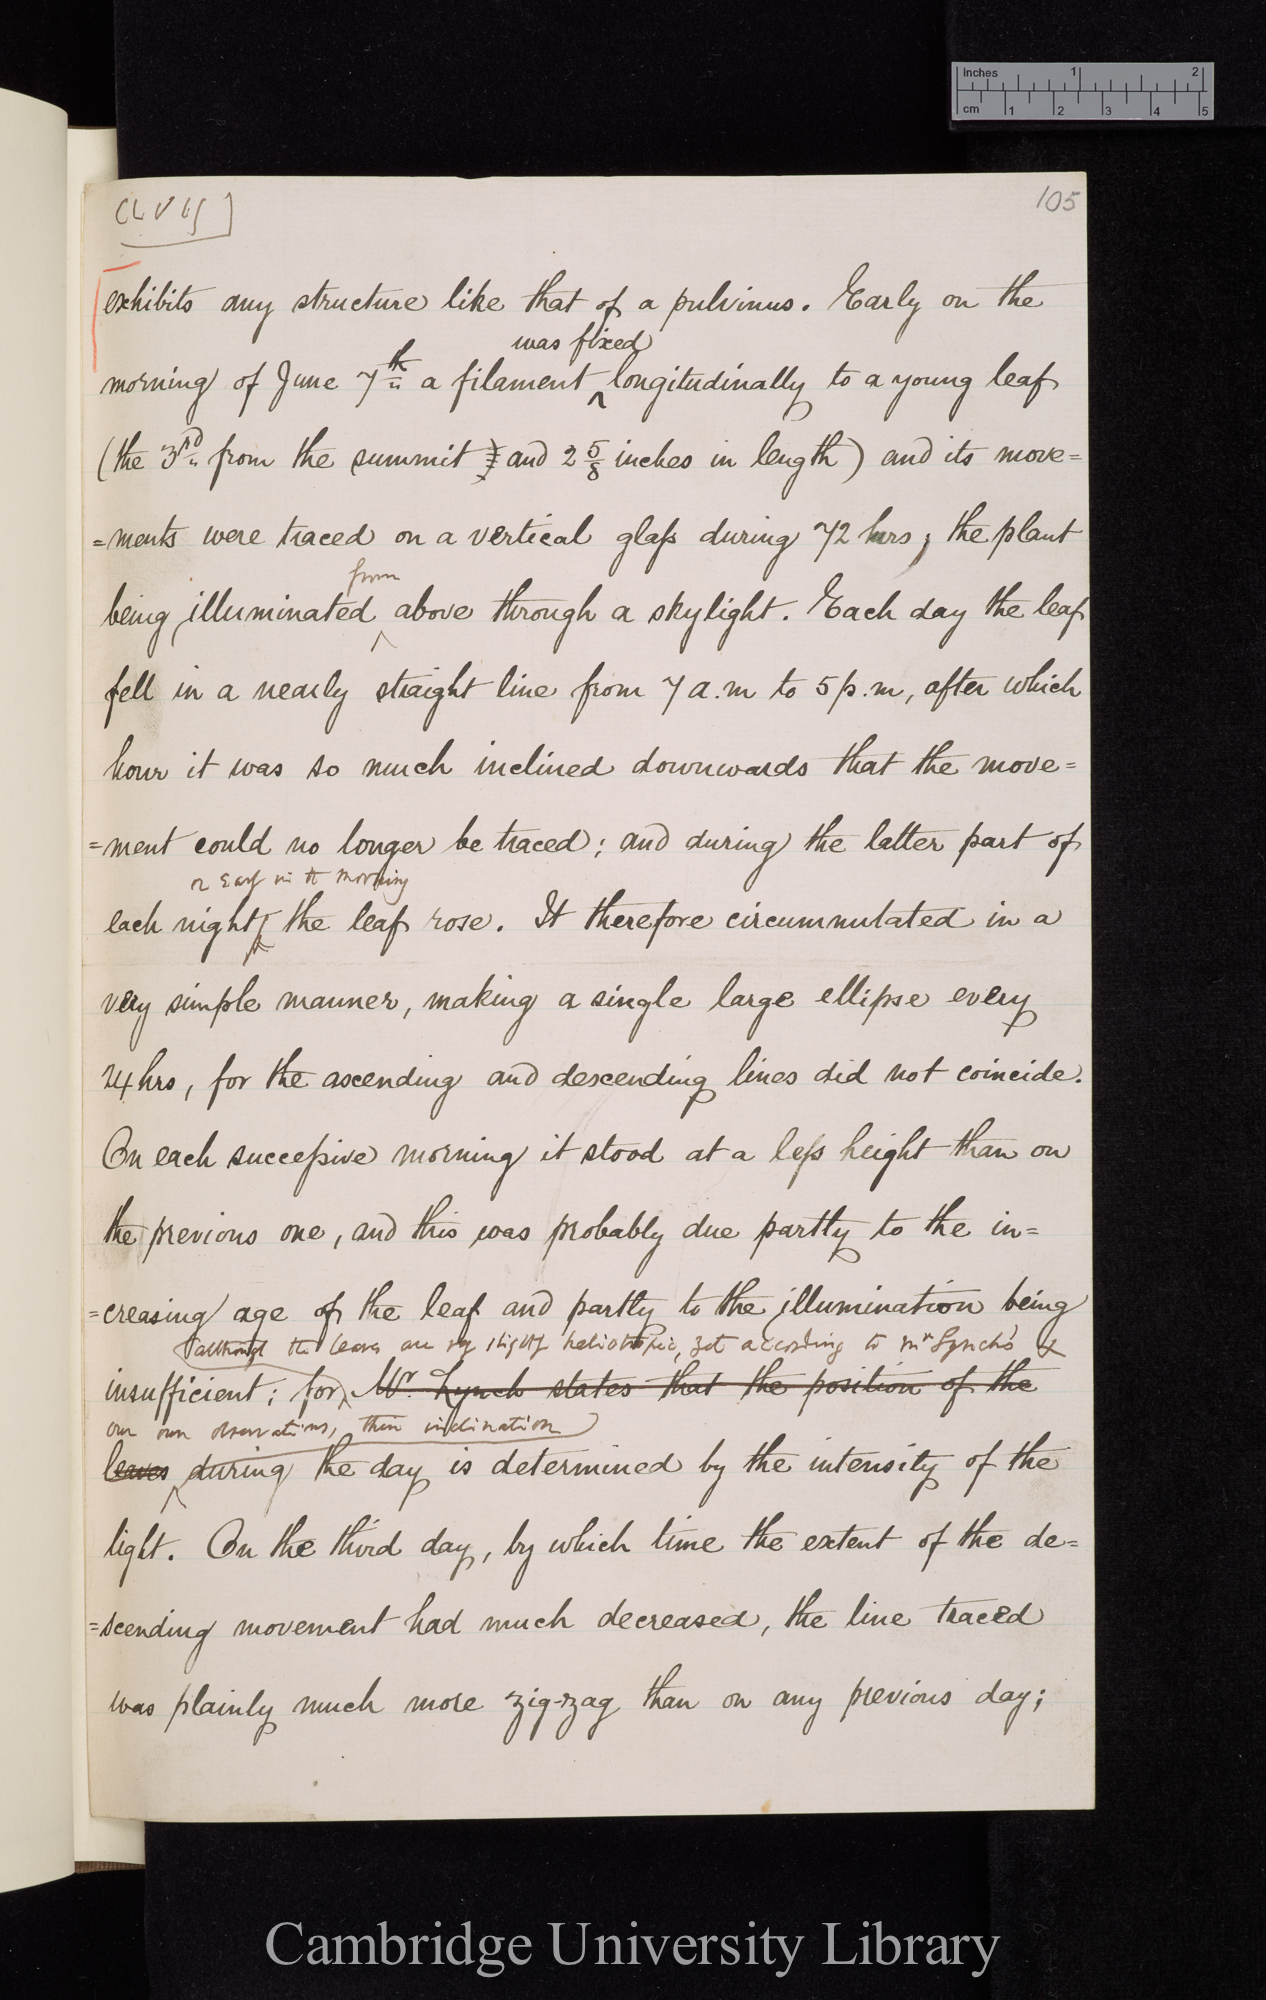 Inches 1 2
cm 1 2 3 4 5
105
exhibits any structure like that of a pulvinus. Early on the
was fixed
morning of June 7th a filament ^ longitudinally to a young leaf
(the 3rd from the summit and 2 5/8 inches in length) and its move=
=ments were traced on a vertical glass during 72 hrs; the plant
from
being illuminated ^ above through a skylight. Each day the leaf
fell in a nearly straight line from 7 a.m to 5 p.m, after which
hour it was so much inclined downwards that the move=
=ment could no longer be traced; and during the latter part of
or early in the morning
each night ^ the leaf rose. It therefore circumnutated in a
very simple manner, making a single large ellipse every
24 hrs, for the ascending and descending lines did not coincide.
On each successive morning it stood at a less height than on
the previous one, and this was probably due partly to the in=
=creasing age of the leaf and partly to the illumination being
although the leaves are very slightly heliotropic, yet according to Mr Lynch's &
insufficient; for ^ Mr. Lynch states that the position of the
our own observations, their inclination
leaves ^ during the day is determined by the intensity of the
light. On the third day, by which time the extent of the de=
=scending movement had much decreased, the line traced
was plainly much more zig-zag than on any previous day;
Cambridge University Library